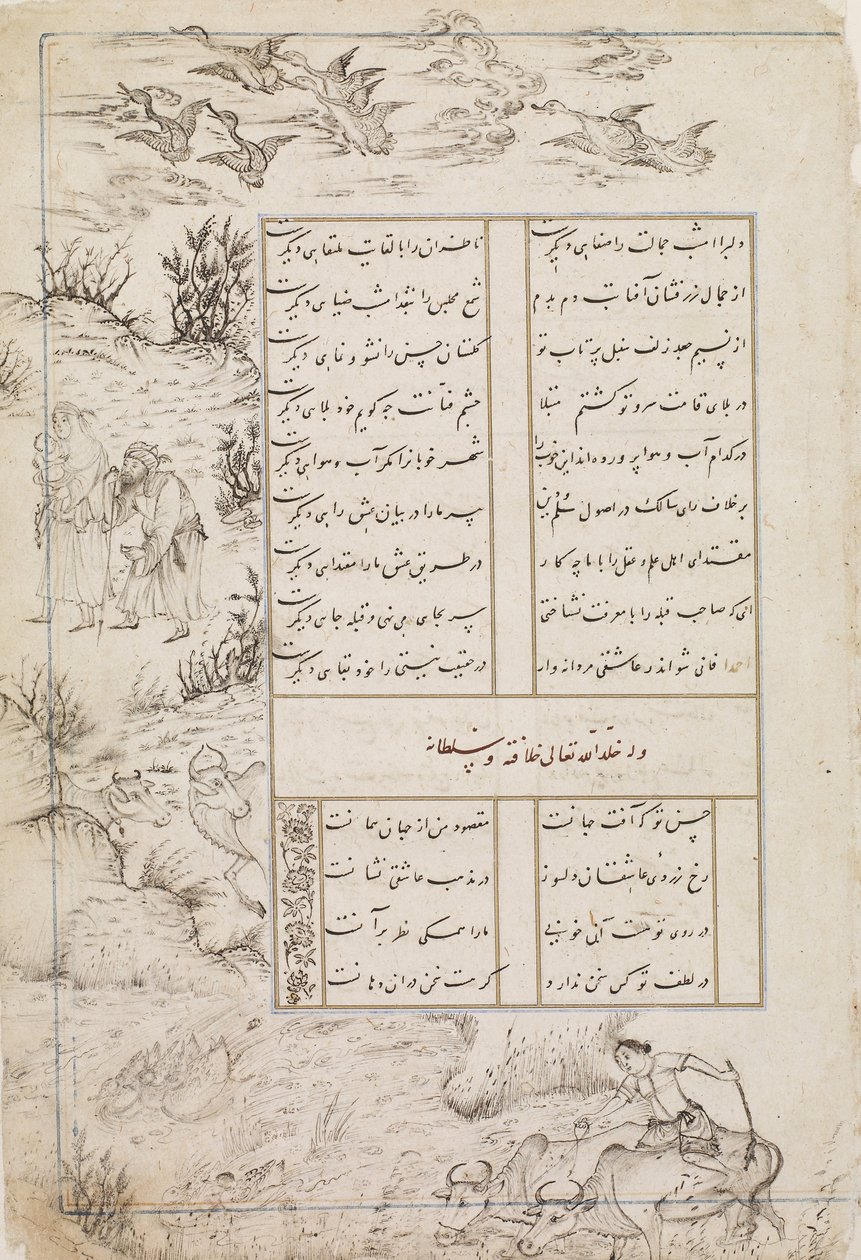 دلبرا امشب جمالت را صفایی دیگرست ناظران را با لقایت ملتقایی دیگرست
از جمال زرفشان آفتابت دم بدم شمع مجلس را بنقد امشب ضیایی دیگرست
از نسیم جعد زلف سنبل پرتاب تو گلستان حسن را نشو و نمایی دیگرست
در بلای قامت سرو تو گشتم مبتلا چشم فتانت چه گویم خود بلایی دیگرست
در کدام آب و هوا پرورده اند این خوب را شهر خوبانرا مگر آب و هوایی دیگرست
بر خلاف رای سالک در اصول علم و دین پیر ما را در بیان عشق رایی دیگرست
مقتدای اهل علم و عقل را با ما چه کار در طریق عشق ما را مقتدایی دیگرست
ای که صاحب قبله را با معرفت نشناختی سر بجایی می نهی و قبله جایی دیگرست
احمدا فانی شو اندر عاشقی مردانه وار در حقیقت نیستی را خود بقایی دیگرست
وله خلد الله تعالی خلافته وسلطانه
حسن تو که آفت جهانست مقصود من از جهان همانست
رخ زردی عاشقان دلسوز در مذهب عاشقی نشانست
در روی تو هست آنی خوبی ما را همگی نظر بر آنست
در لطف تو کس سخن ندارد گر هست سخن در ان دهانست